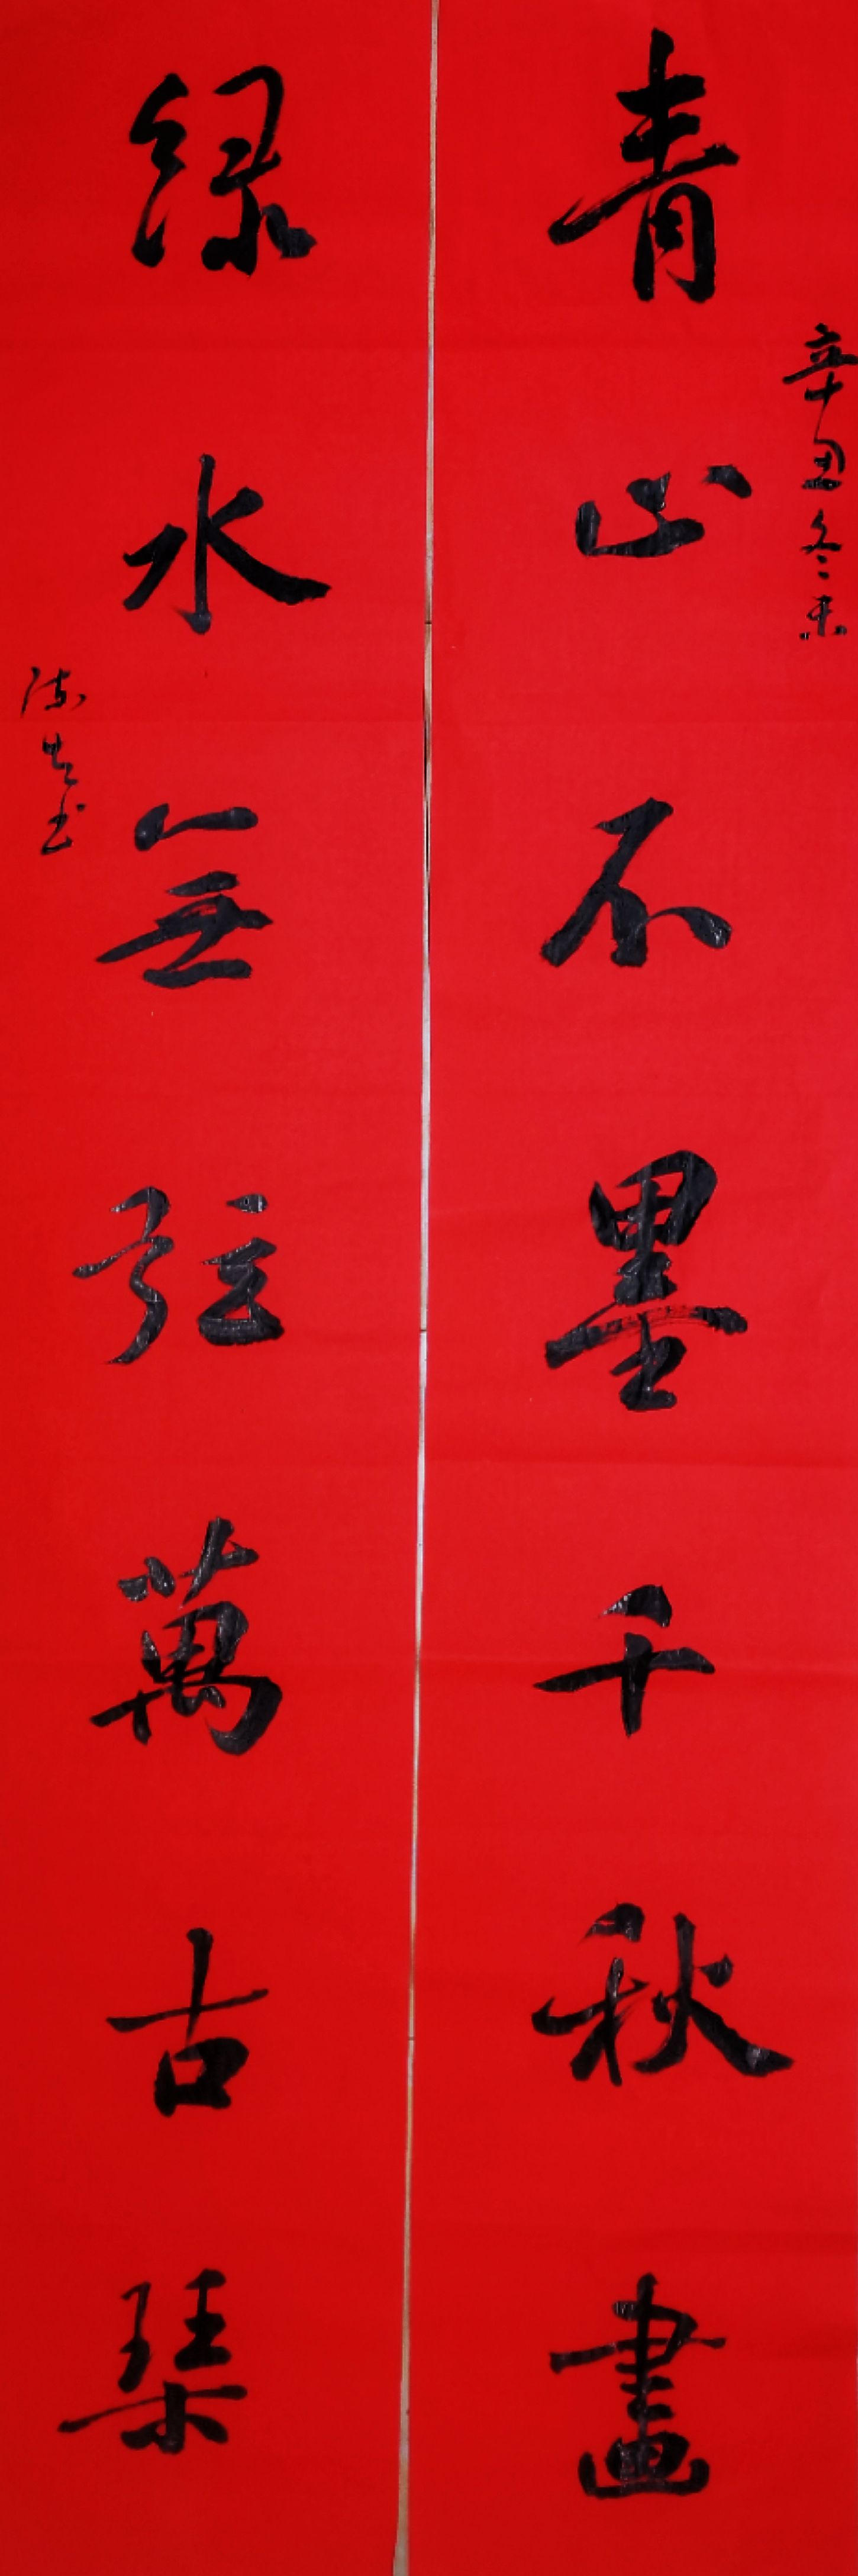 青山不墨千秋畫
辛丑冬末
绿水無弦萬古琴